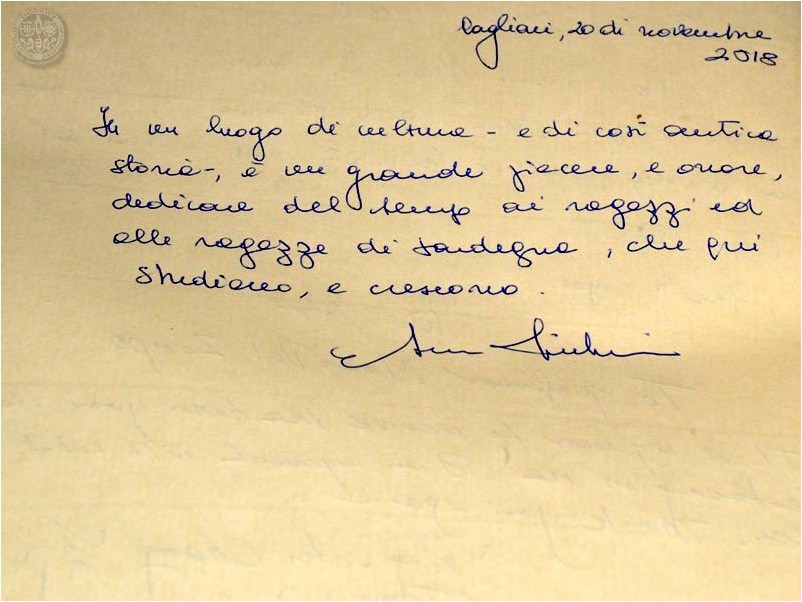 Cagliari, 20 di novembre
2018
In un luogo di cultura - e di così antica
storia -, è un grande piacere, e onore,
dedicare del tempo ai ragazzi ed
alle ragazze di Sardegna, che qui
studiano, e crescono.